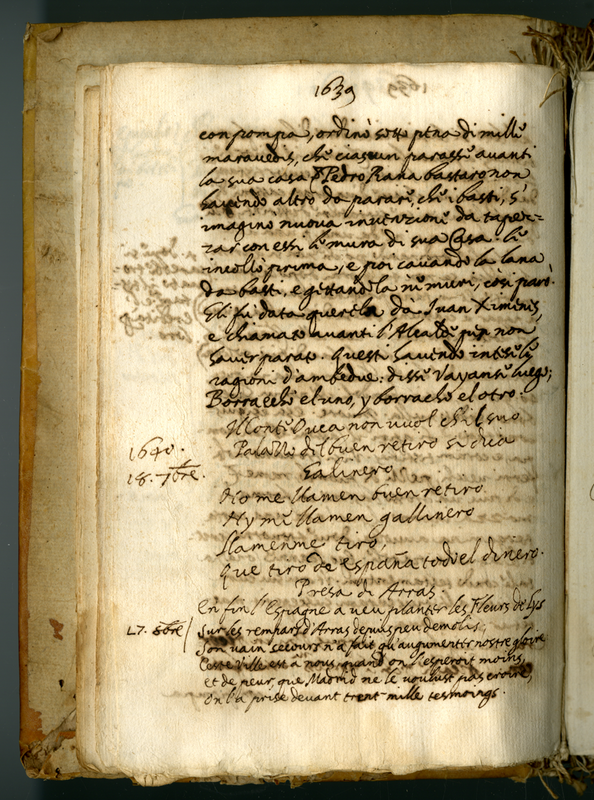 1639
con pompa, ordinò sotto pena di mille
maravedis, che ciascun parasse avanti
la sua casa Pedro Rana bastaro non
havendo altro da parare che i basti, s'
imaginò nuova inventione da tapez-
zar con essi le mura di sua Casa. li
incollò prima, e poi cavando la lana
da basti, e gettandola ne muri, così parò.
Gli fu data querela da Juan Ximenes,
e chiamato avanti l'Alcalde per non
haver parato. Questi havendo intese le
ragioni d'ambedue: disse Vayanse luego;
Borracho el uno, y borracho el otro.
Il Conte Duca non vuol che il suo
1640.
Palazzo del buen retiro si dica
18. 7bre.
Galinero
No me llamen buen retiro
Ny me llamen gallinero
Llamenme tiro,
Que tiro de españa todo el dinero.
Presa di Arras.
En fin l'Espagne a veu planter les Fleurs de Lys
27. 8bre
Sur les rempars d'Arras depuis peu demolis;
Son vain secours n'a fait qu'augmenter nostre gloire
Cette Ville est a nous, quand on l'esperoit moins,
et de peur, que Madrid ne le voulust pas croire,
On l'a prise devant trent mille tesmoings.